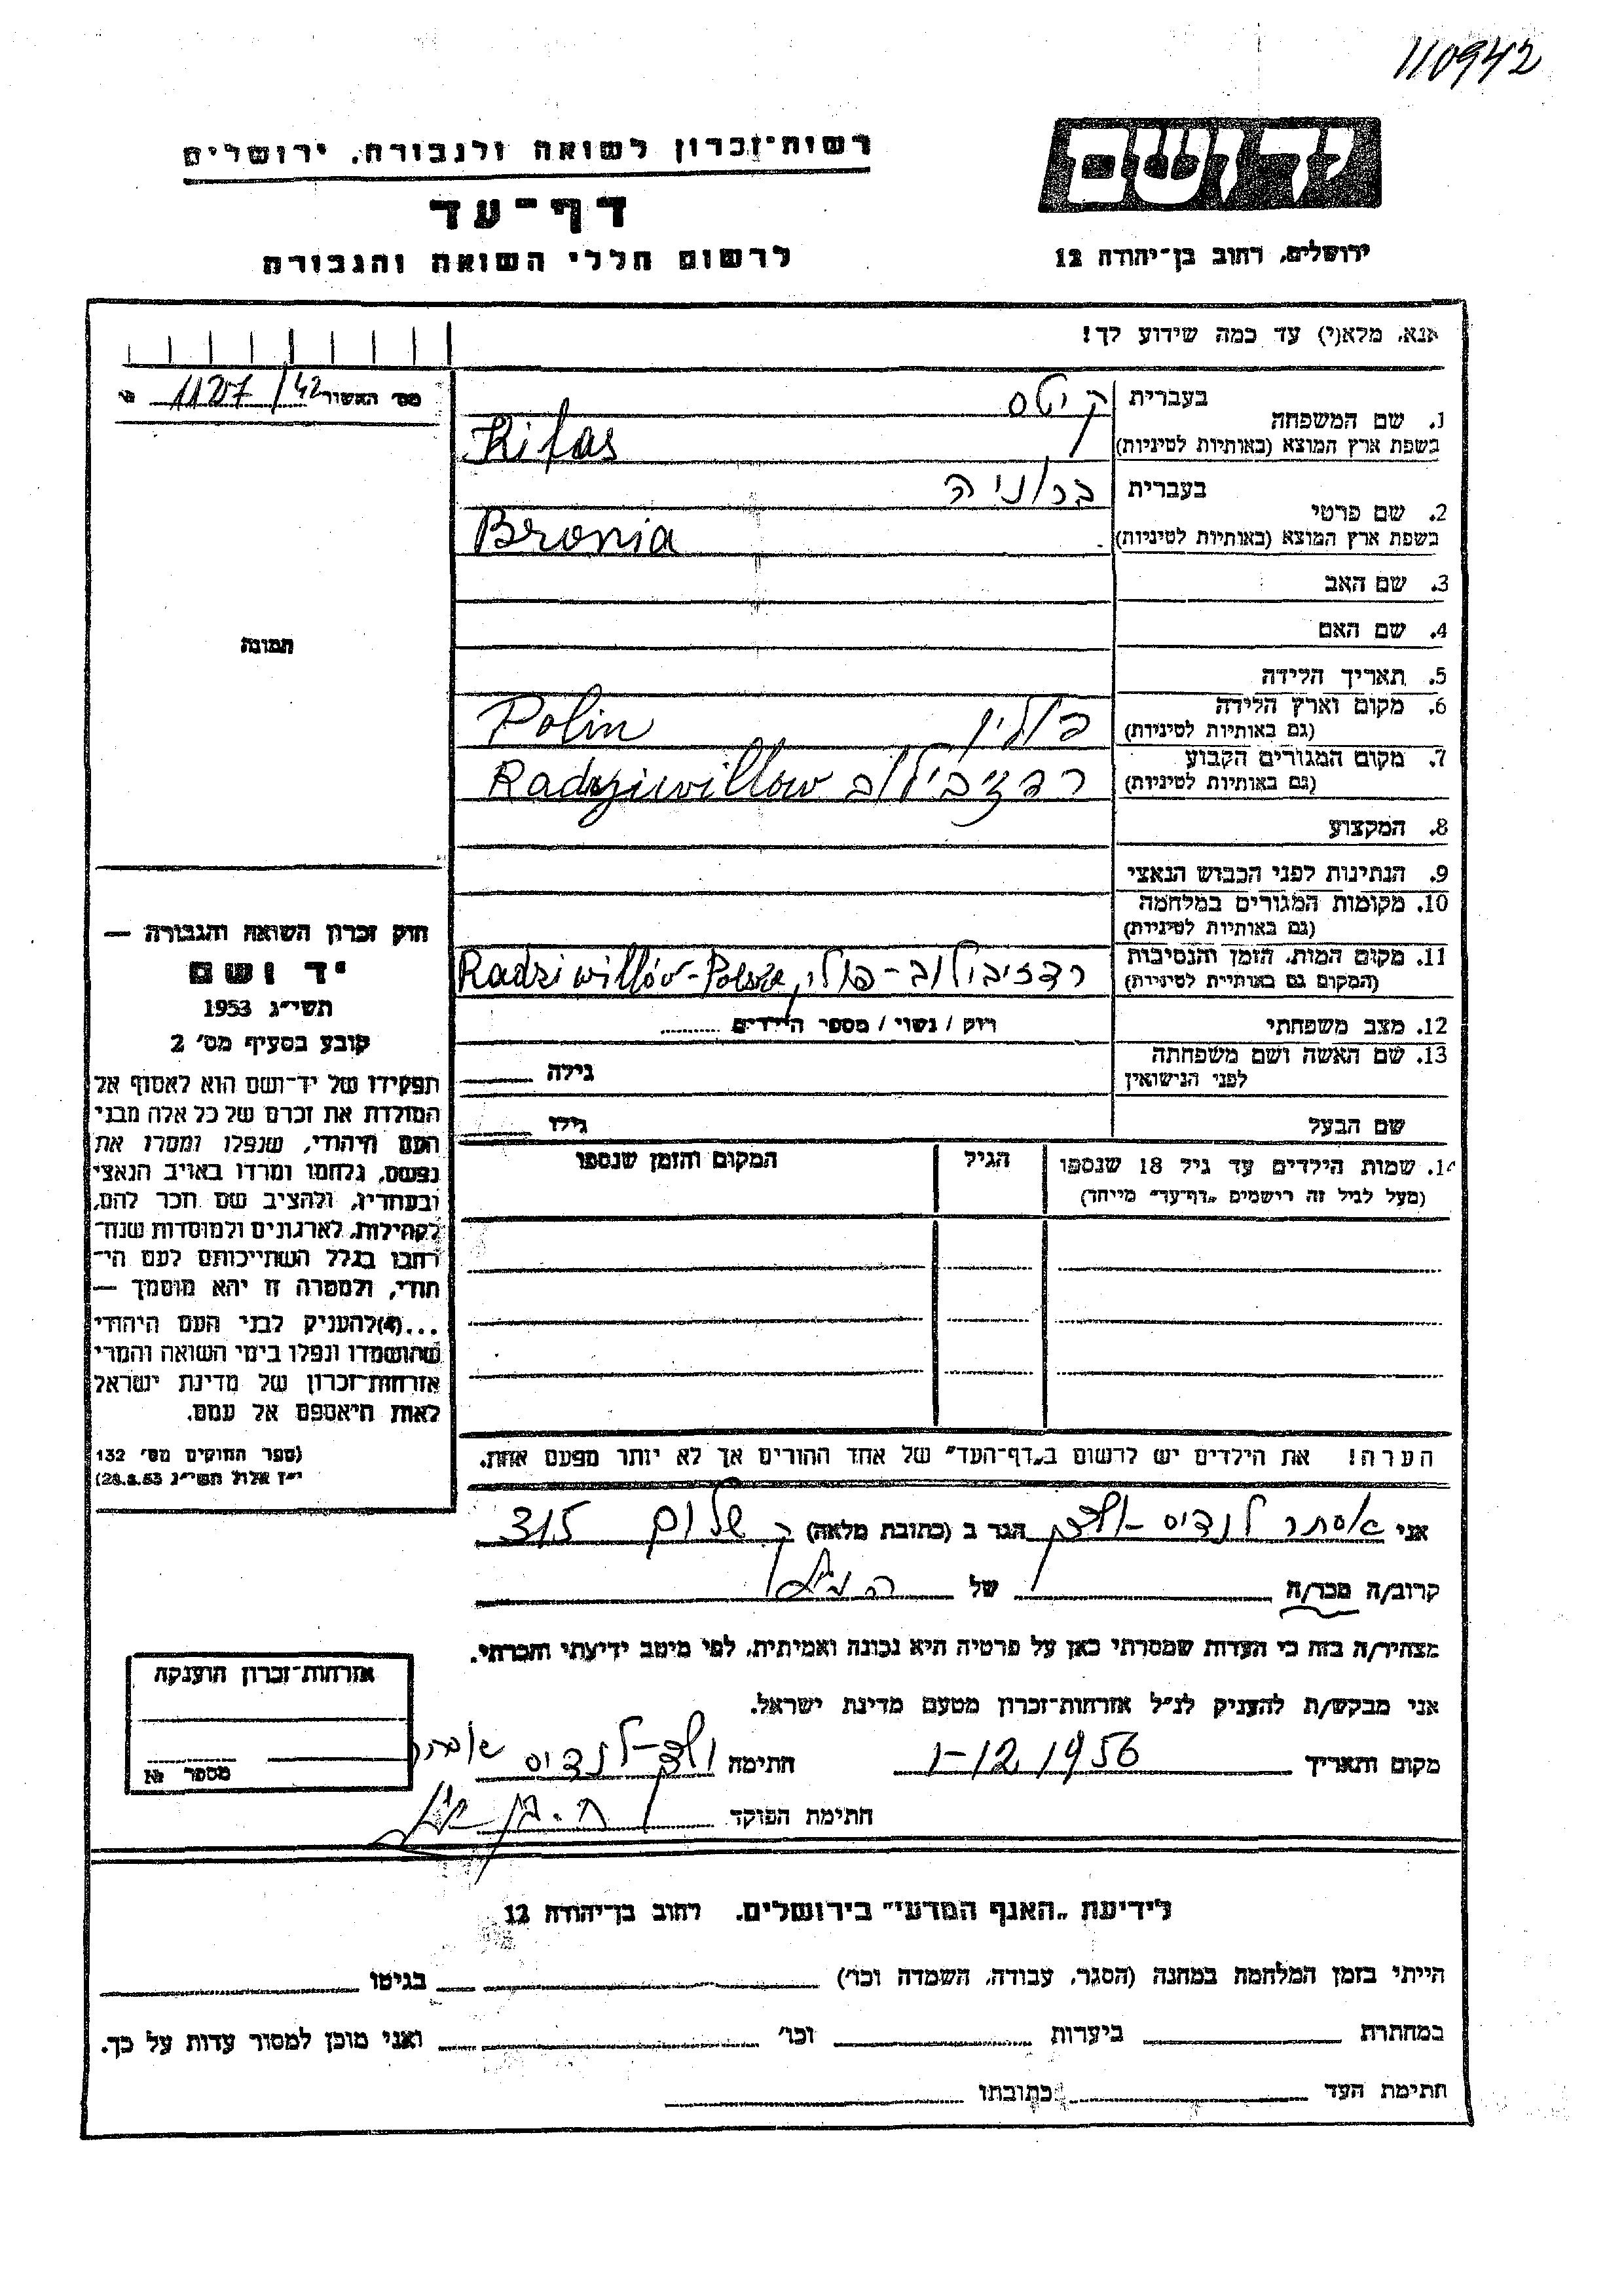 110942
רשות־זכרון לשואה ולגבורה, ירושלים
יד ושם
דף־עד
לרשום חללי השואה והגבורה
ירושלים, רחוב בן־יהודה 12
אנא, מלא(י) עד כמה שידוע לך!
מס׳ האשור 11207/42 №
1. שם המשפחה
בעברית קיטס
בשפת ארץ המוצא (באותיות לטיניות) Kitas
2. שם פרטי
בעברית ברוניה
בשפת ארץ המוצא (באותיות לטיניות) Bronia
3. שם האב
4. שם האם
5. תאריך הלידה
6. מקום וארץ הלידה פולין Polin
(גם באותיות לטיניות)
7. מקום המגורים הקבוע רדזיבילוב Radziwillow
(גם באותיות לטיניות)
8. המקצוע
9. הנתינות לפני הכבוש הנאצי
10. מקומות המגורים במלחמה
(גם באותיות לטיניות)
11. מקום המות, הזמן והנסיבות רדזיבילוב-פולין Radziwillów-Polska
(המקום גם באותיות לטיניות)
12. מצב משפחתי רווק / נשוי / מספר הילדים
13. שם האשה ושם משפחתה גילה
לפני הנישואין
שם הבעל גילו
14. שמות הילדים עד גיל 18 שנספו הגיל המקום והזמן שנספו
(מעל לגיל זה רישמים „דף־עד״ מייחד)
הערה! את הילדים יש לרשום ב„דף־העד״ של אחד ההורים אך לא יותר מפעם אחת.
תמונה
חוק זכרון השואה והגבורה —
יד ושם
תשי״ג 1953
קובע בסעיף מס׳ 2
תפקידו של יד־ושם הוא לאסוף אל
המולדת את זכרם של כל אלה מבני
העם היהודי, שנפלו ומסרו את
נפשם, נלחמו ומרדו באויב הנאצי
ובעוזריו, ולהציב שם וזכר להם,
לקהילות, לארגונים ולמוסדות שנח־
רבו בגלל השתייכותם לעם הי־
הודי, ולמטרה זו יהא מוסמך —
...(4) להעניק לבני העם היהודי
שהושמדו ונפלו בימי השואה והמרי
אזרחות־זכרון של מדינת ישראל
לאות היאספם אל עמם.
(ספר החוקים מס׳ 132
י״ז אלול תשי״ג 28.8.53)
אני אסתר לנדיס הגר ב (כתובת מלאה) ק שלום 315
קרוב/ה מכר/ה של
מצהיר/ה בזה כי העדות שמסרתי כאן על פרטיה היא נכונה ואמיתית, לפי מיטב ידיעתי והכרתי.
אני מבקש/ת להעניק לנ״ל אזרחות־זכרון מטעם מדינת ישראל.
מקום ותאריך 1-12 1956 חתימה לנדיס אסתר
חתימת הפוקד
אזרחות־זכרון הוענקה
מספר №
לידיעת „האגף המדעי״ בירושלים, רחוב בן־יהודה 12
הייתי בזמן המלחמה במחנה (הסגר, עבודה, השמדה וכו׳) בגיטו
במחתרת ביערות וכו׳ ואני מוכן למסור עדות על כך.
חתימת העד כתובתו